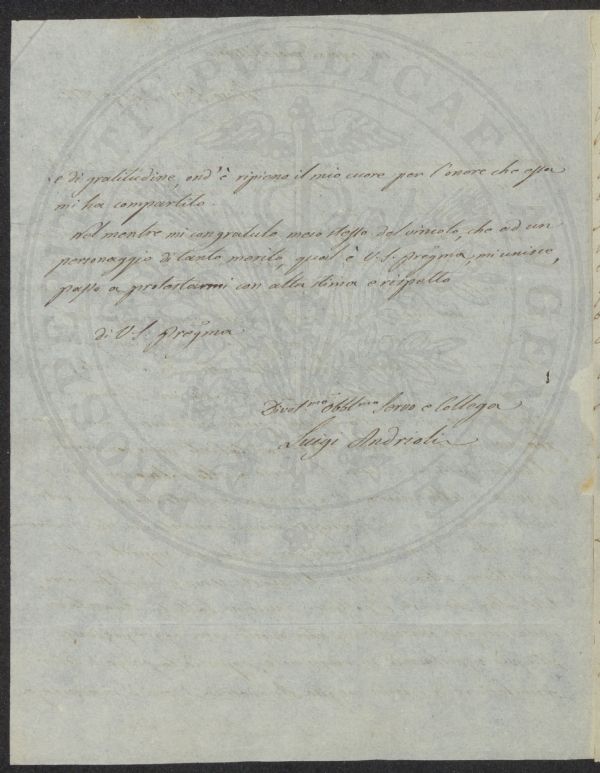 e di gratitudine, ond'è ripieno il mio cuore per l'onore che essa
mi ha compartito.
Nel mentre mi congratulo meco stesso del vincolo, che ad un
personaggio di tanto merito, qual è V. S. Pregma, mi unisce,
passo a protestarmi con alta stima e rispetto
di V. S. Pregma
Devotmo Obblmo Servo e Collega
Luigi Andrioli
PROSPERITATI PUBLICAE AUGENDAE